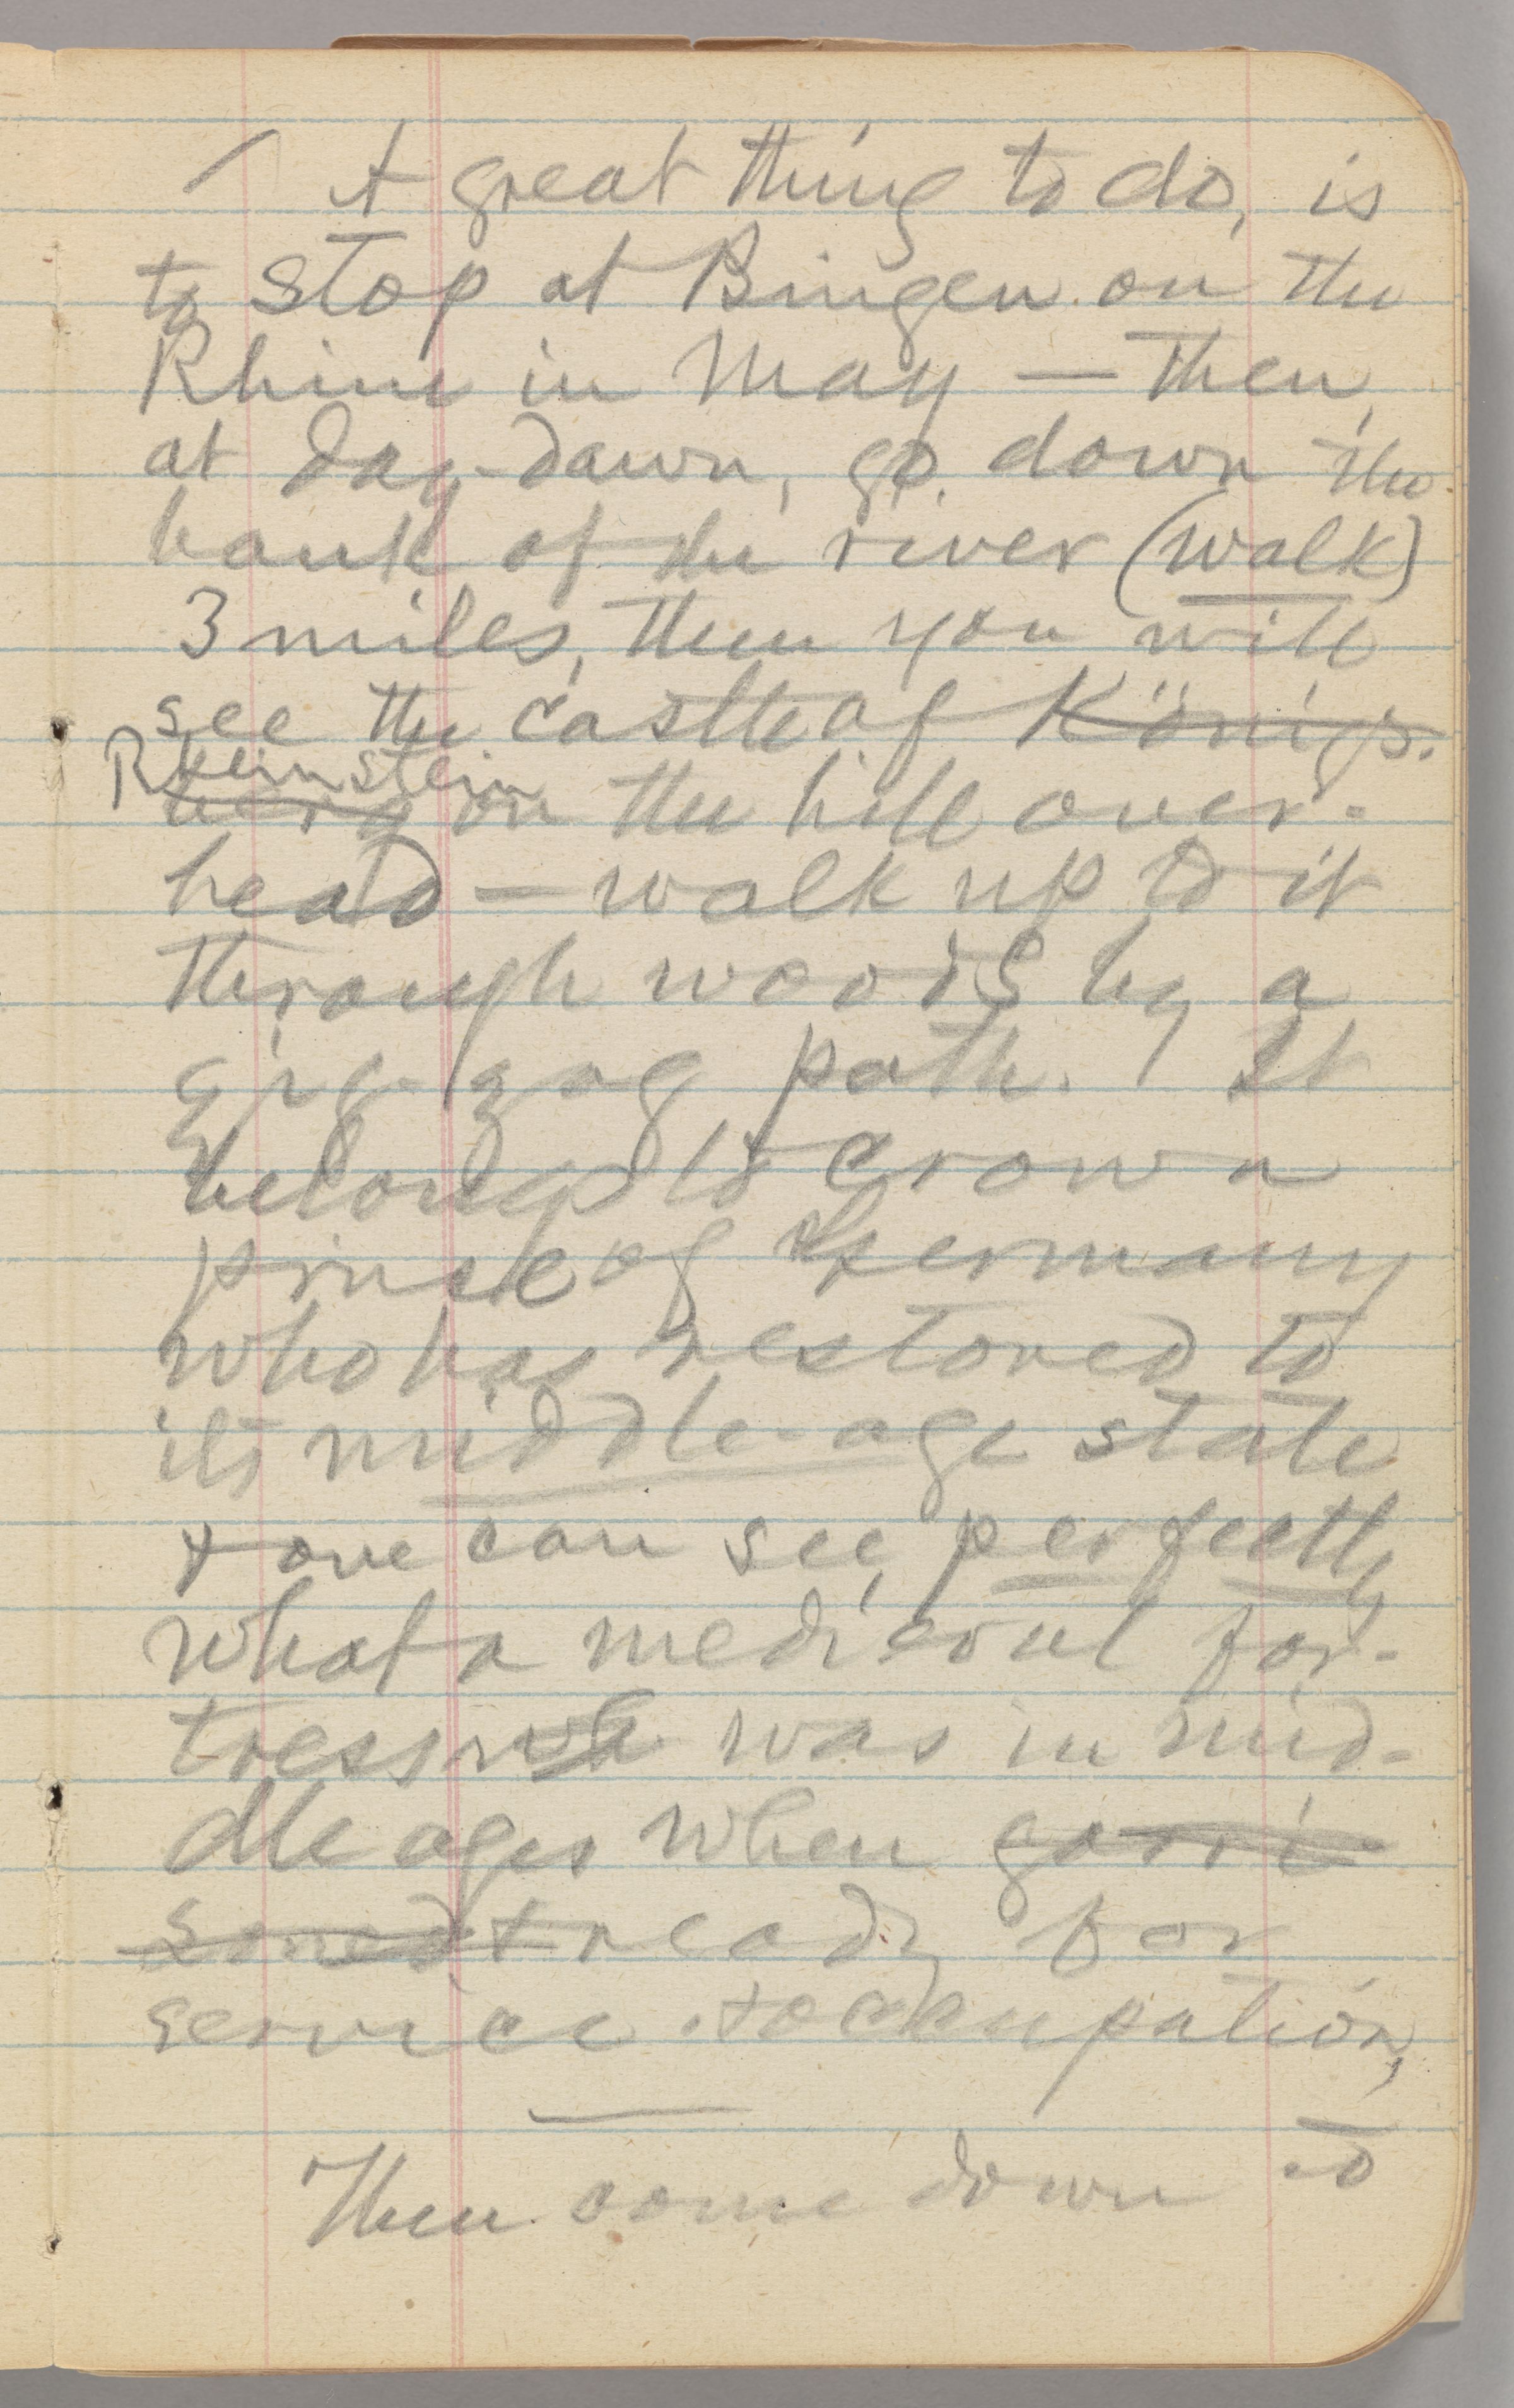 A great thing to do, is
to stop at Bingen on the
Rhine in May — then,
at day-dawn, go down the
bank of the river (walk)
3 miles, then you will
see the castle of Königs-
Rheinstein
berg on the hill over-
head — walk up to it
through woods by a
zig-zag path. It
belongs to crown
prince of Germany
who has restored to
its middle-age state
& one can see, perfectly
what a medieval for-
tress was in mid-
dle ages when garri-
soned & ready for
service & occupation,
Then come down to